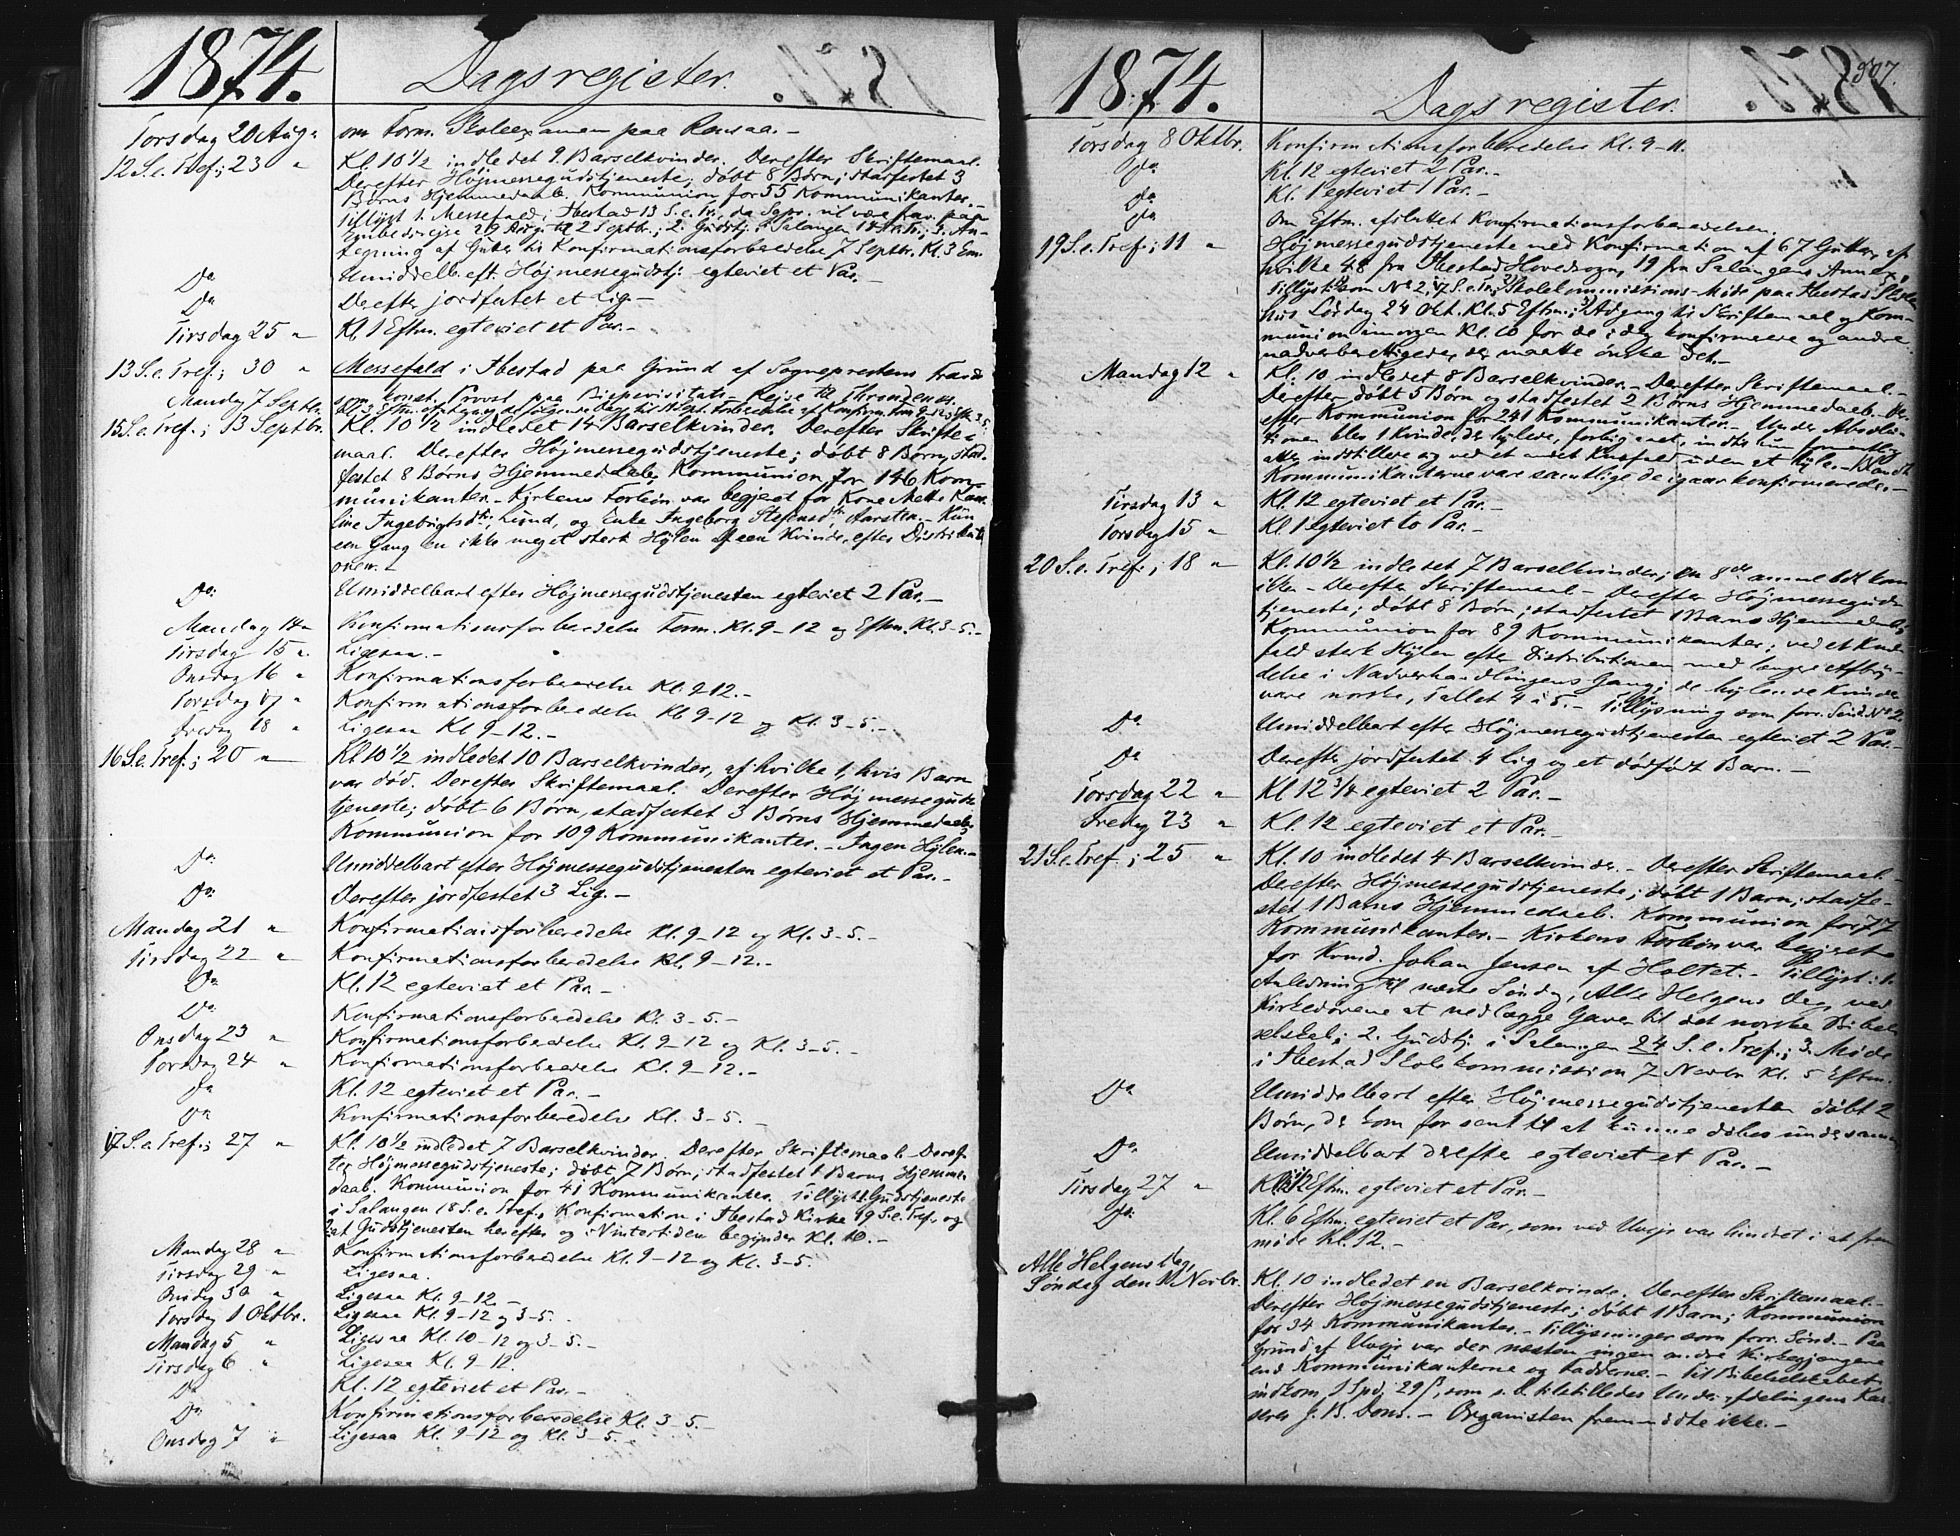 1874.
Dagsregister.
Torsdag 20 Aug. om Form. Skoleexamen paa Rensaa. –
12 S. e. Tref.; 23 " Kl. 10 1/2 indledet 9 Barselkvinder. Derefter Skriftemaal.
Derefter Højmessegudstjeneste; døbt 8 Børn; stadfestet 3
Børns Hjemmedaab. Kommunion for 55 Kommunikanter. –
Tillyst 1. Messefald i Ibestad 13 S. e. Tr., da Sgpr. vil være frav. paa
Embedsrejse 29 Aug. til 2 Septbr.; 2. Gudstj. i Salangen 14 S. e. Tr.; 3. An-
tegning af Gutter til Konfirmationsforberedelse 7 Septbr. Kl. 3 Em.
Do Umiddelb. eft. Højmessegudstj. egteviet et Par. –
Do Derefter jordfestet et Lig –
Tirsdag 25 " Kl. 1 Eftm. egteviet et Par. –
13 S. e. Tref.; 30 " Messefald i Ibestad paa Grund af Sognepræstens
som konst. Provst paa Bispevisitats-Rejse til Throndenes.
Mandag 7 Septbr. Kl. 3 Eftm.
15 S. e. Tref.; 13 Septbr. Kl. 10 1/2 indledet 14 Barselkvinder. Derefter Skrifte-
maal. Derefter Højmessegudstjeneste; døbt 8 Børn, stad-
festet 8 Børns Hjemmedaab. Kommunion for 146 Kom-
munikanter. – Kirkens Forbøn var begjeret for Kone Mette Karo-
line Ingebrigtsdtr, Lund, og Enke Ingeborg Stefensdtr, Aarsten. – Kun
een Gang en ikke meget sterk Hylen af een Kvinde, efter Distributi-
onen. –
Do Umiddelbart efter Højmessegudstjenesten egteviet 2 Par. –
Mandag 14 " Konfirmationsforberedelse Form. Kl. 9–12 og Eftm. Kl. 3–5. –
Tirsdag 15 " Ligesaa. –
Onsdag 16 " Konfirmationsforberedelse Kl. 9–12. –
Torsdag 17 " Konfirmationsforberedelse Kl. 9–12 og Kl. 3–5. –
Fredag 18 " Ligesaa Kl. 9–12. –
16 S. e. Tref.; 20 " Kl. 10 1/2 indledet 10 Barselkvinder, af hvilke 1, hvis Barn
var død. Derefter Skriftemaal. Derefter Højmesseguds-
tjeneste; døbt 6 Børn, stadfestet 3 Børns Hjemmedaab;
Kommunion for 109 Kommunikanter. – Ingen Hylen. –
Do Umiddelbart efter Højmessegudstjenesten egteviet et Par. –
Do Derefter jordfestet 3 Lig. –
Mandag 21 " Konfirmationsforberedelse Kl. 9–12 og Kl. 3–5. –
Tirsdag 22 " Konfirmationsforberedelse Kl. 9–12. –
Do Kl. 12 egteviet et Par. –
Do Konfirmationsforberedelse Kl. 3–5. –
Onsdag 23 " Konfirmationsforberedelse Kl. 9–12 og Kl. 3–5. –
Torsdag 24 " Konfirmationsforberedelse Kl. 9–12. –
Do Kl. 12 egteviet et Par. –
Do Konfirmationsforberedelse Kl. 3–5. –
17 S. e. Tref.; 27 " Kl. 10 1/2 indledet 7 Barselkvinder. Derefter Skriftemaal. Deref-
ter Højmessegudstjeneste; døbt 7 Børn; stadfestet 1 Barns Hjemme-
daab. Kommunion for 41 Kommunikanter. Tillyst 1. Gudstjeneste
i Salangen 18 S. e. Tref., Konfirmation i Ibestad Kirke 19 S. e. Tref. og
at Gudstjenesten herefter og i Vintertiden begynder Kl. 10. –
Mandag 28 " Konfirmationsforberedelse Kl. 9–12 og Kl. 3–5.
Tirsdag 29 " Ligesaa.
Onsdag 30 " Ligesaa Kl. 9–12. –
Torsdag 1 Oktbr. Ligesaa Kl. 9–12 og 3–5. –
Mandag 5 " Ligesaa Kl. 10–12 og 3–5. –
Tirsdag 6 " Ligesaa Kl. 9–12.
Do Kl. 12 egteviet et Par. –
Do Konfirmationsforberedelse Kl. 3–5. –
Onsdag 7 " Ligesaa Kl. 9–12 og Kl. 3–5. –
1874.
Dagsregister.
307.
Torsdag 8 Oktbr. Konfirmationsforberedelse Kl. 9–11.
Do Kl. 12 egteviet 2 Par. –
Do Kl. 1 egteviet 1 Par. –
Do Om Eftm. afsluttet Konfirmationsforberedelsen.
19 S. e. Tref.; 11 " Højmessegudstjeneste med Konfirmation af 67 Gutter, af
hvilke 48 fra Ibestad Hovedsogn, 19 fra Salangens Annex.
Tillyst: 1) som No 2, 17 S. e. Tr.; 2) Skolekommissions-Møde paa Ibestad Skole-
hus Lørdag 24 Okt. Kl. 5 Eftm.; 3) Adgang til Skriftemaal og Kom-
munion imorgen Kl. 10 for de idag konfirmerede og andre
nadverberettigede, der maatte ønske det. –
Mandag 12 " Kl. 10 indledet 8 Barselkvinder. – Derefter Skriftemaal. –
Derefter døbt 5 Børn og stadfestet 2 Børns Hjemmedaab. – Der-
efter Kommunion for 241 Kommunikanter. – Under Absolu-
tionen blev 1 Kvinde, der hylede, forbigaaet, indtil hun
atter indstillede sig ved et andet Knefald uden at hyle. – Blandt
Kommunikanterne var samtlige de igaar konfirmerede. –
Tirsdag 13 " Kl. 12 egteviet et Par. –
Torsdag 15 " Kl. 1 egteviet to Par. –
20 S. e. Tref.; 18 " Kl. 10 1/2 indledet 7 Barselkvinder; en 8de anmeldt kom
ikke. – Derefter Skriftemaal – Derefter Højmesseguds-
tjeneste; døbt 8 Børn; stadfestet 1 Barns Hjemmedaab;
Kommunion for 89 Kommunikanter; ved et Kne-
fald sterk Hylen efter Distributionen med lengere Afbry-
delse i Nadverhandlingens Gang; de hylende Kvinder
vare norske, Tallet 4 à 5. – Tillysning som forr. Sønd. No 2.
Do Umiddelbart efter Højmessegudstjenesten egteviet 2 Par. –
Do Derefter jordfestet 4 Lig og et dødfødt Barn. –
Torsdag 22 " Kl. 12 3/4 egteviet 2 Par. –
Fredag 23 " Kl. 12 egteviet et Par. –
21 S. e. Tref.; 25 " Kl. 10 indledet 4 Barselkvinder. – Derefter Skriftemaal. –
Derefter Højmessegudstjeneste; døbt 1 Barn; stadfe-
stet 1 Barns Hjemmedaab. Kommunion for 77
Kommunikanter. – Kirkens Forbøn var begjeret
for Kvmd. Johan Jensen af Holtet. – Tillyst: 1.
Anledning til næste Søndag, Alle Helgens Dag, ved
Kirkedørene at nedlægge Gaver til det norske Bibel-
selskab; 2. Gudstj. i Salangen 24 S. e. Tref.; 3. Møde
i Ibestad Skolekommission 7 Novbr. Kl. 5 Eftm.
Do Umiddelbart efter Højmessegudstjenesten døbt 2
Børn, der kom for sent til at kunne døbes under samme
Do Umiddelbart derefter egteviet et Par. –
Tirsdag 27 " Eftm. egteviet et Par. –
Do Kl. 6 Eftm. egteviet et Par, som ved Uvejr var hindret i at frem-
møde Kl. 12. –
Alle Helgens Dag,
Søndag den 1 Novbr. Kl. 10 indledet en Barselkvinde. Derefter Skriftemaal. –
Derefter Højmessegudstjeneste; døbt 1 Barn; Kommunion
for 34 Kommunikanter. – Tillysninger som forr. Sønd. – Paa
Grund af Uvejr var der næsten ingen andre Kirkegjængere
end Kommunikanterne og Fadderne. – Til Bibelselskabet
indkom 1 Spd. 29 ß, som s. D. tilstilledes Underafdelingens Kas-
serer J. B. Dons. – Organisten fremmødte ikke. –